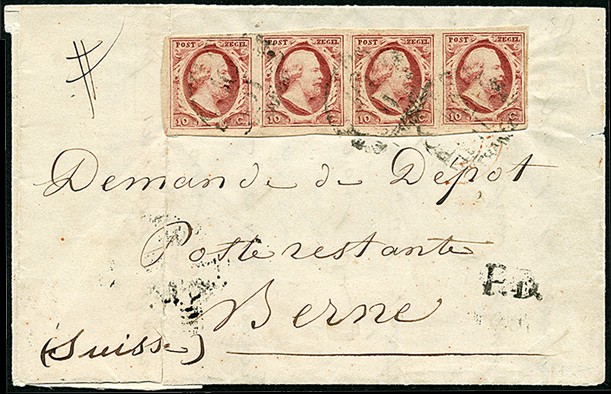 POST ZEGEL POST ZEGEL POST ZEGEL POST ZEGEL
10 C. 10 C. 10 C. 10 C.
FRANCO
Demande de Dépot
Poste restante
P.D.
Berne
(Suisse)